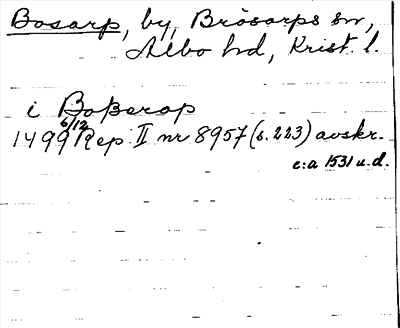 Bosarp, by, Brösarps sn,
Albo hd, Krist. l.
i Boßerop
6/12
1499 Rep. II nr 8957 (s. 223) avskr.
c:a 1531 u.d.